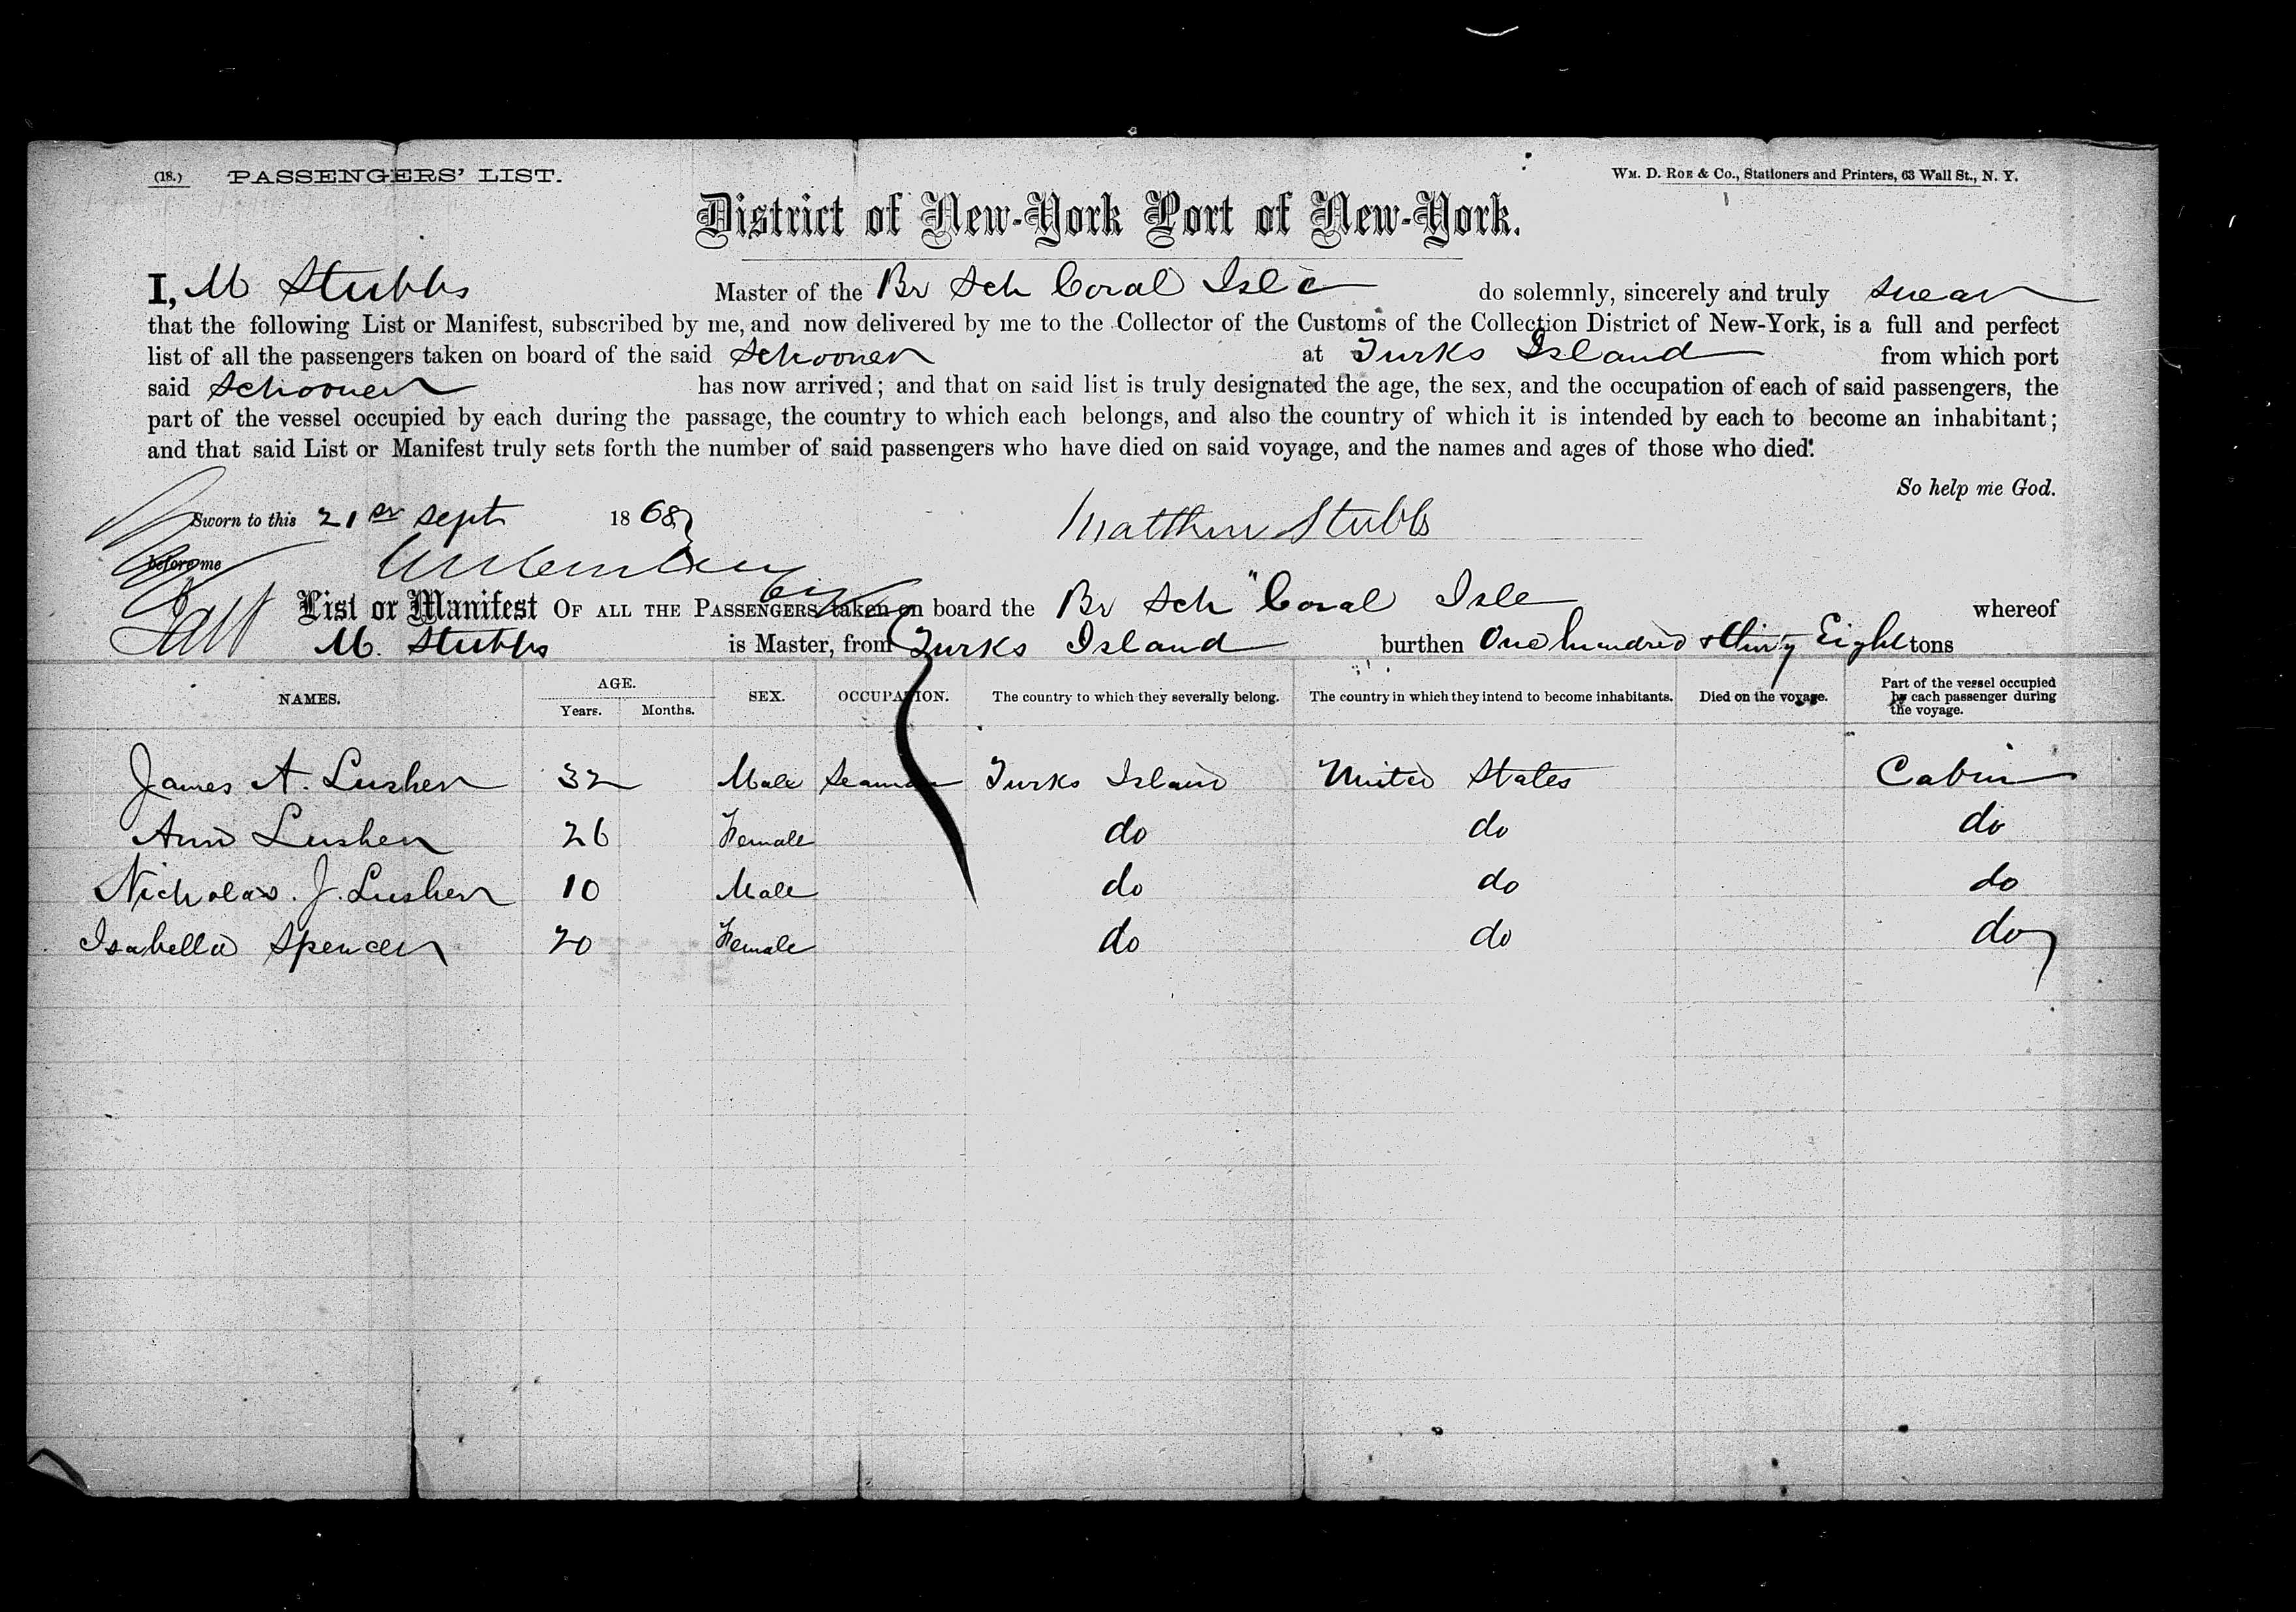 (18.) PASSENGERS' LIST. WM. D. ROE & CO., Stationers and Printers, 63 Wall St., N. Y.
District of New-York Port of New-York.
I, M Stubbs Master of the Br Sch Coral Isle do solemnly, sincerely and truly swear
that the following List or Manifest, subscribed by me, and now delivered by me to the Collector of the Customs of the Collection District of New-York, is a full and perfect
list of all the passengers taken on board of the said Schooner at Turks Island from which port
said Schooner has now arrived; and that on said list is truly designated the age, the sex, and the occupation of each of said passengers, the
part of the vessel occupied by each during the passage, the country to which each belongs, and also the country of which it is intended by each to become an inhabitant;
and that said List or Manifest truly sets forth the number of said passengers who have died on said voyage, and the names and ages of those who died.
So help me God.
Sworn to this 21st Sept 1868
Matthew Stubbs
before me
List or Manifest OF ALL THE PASSENGERS taken on board the Br Sch "Coral Isle whereof
M. Stubbs is Master, from Turks Island burthen One hundred & thirty Eight tons
NAMES. AGE. Years. Months. SEX. OCCUPATION. The country to which they severally belong. The country in which they intend to become inhabitants. Died on the voyage. Part of the vessel occupied by each passenger during the voyage.
James A. Lusher 32 Male Seaman Turks Island United States Cabin
Ann Lusher 26 Female do do do
Nicholas. J. Lusher 10 Male do do do
Isabella Spencer 20 Female do do do